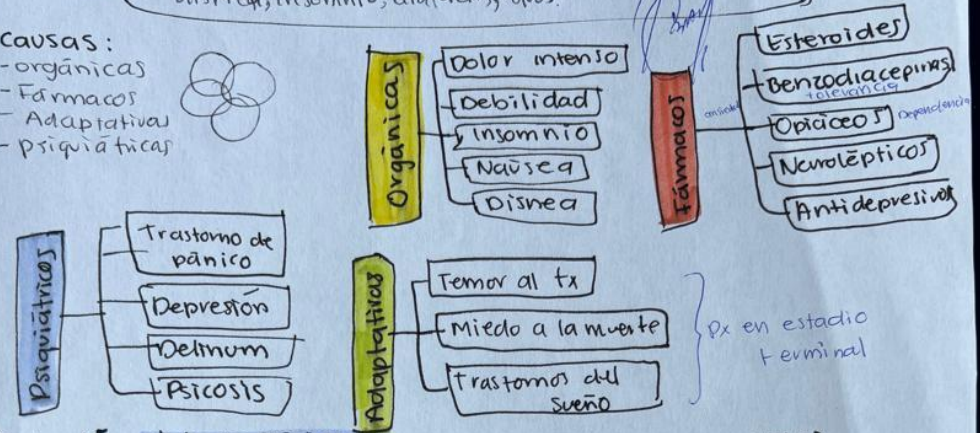 insomnio,
causas:
- orgánicas
- Fármacos
- Adaptativas
- psiquiátricas
Orgánicas
Dolor intenso
Debilidad
insomnio
Naúsea
Disnea
Fármacos
Esteroides
Benzodiacepinas
tolerancia
Opiáceos
Dependencia
Neurolépticos
Antidepresivos
Psiquiátricos
Trastorno de
pánico
Depresión
Delirium
Psicosis
Adaptativas
Temor al tx
Miedo a la muerte
Trastornos del
sueño
Px en estadio
terminal